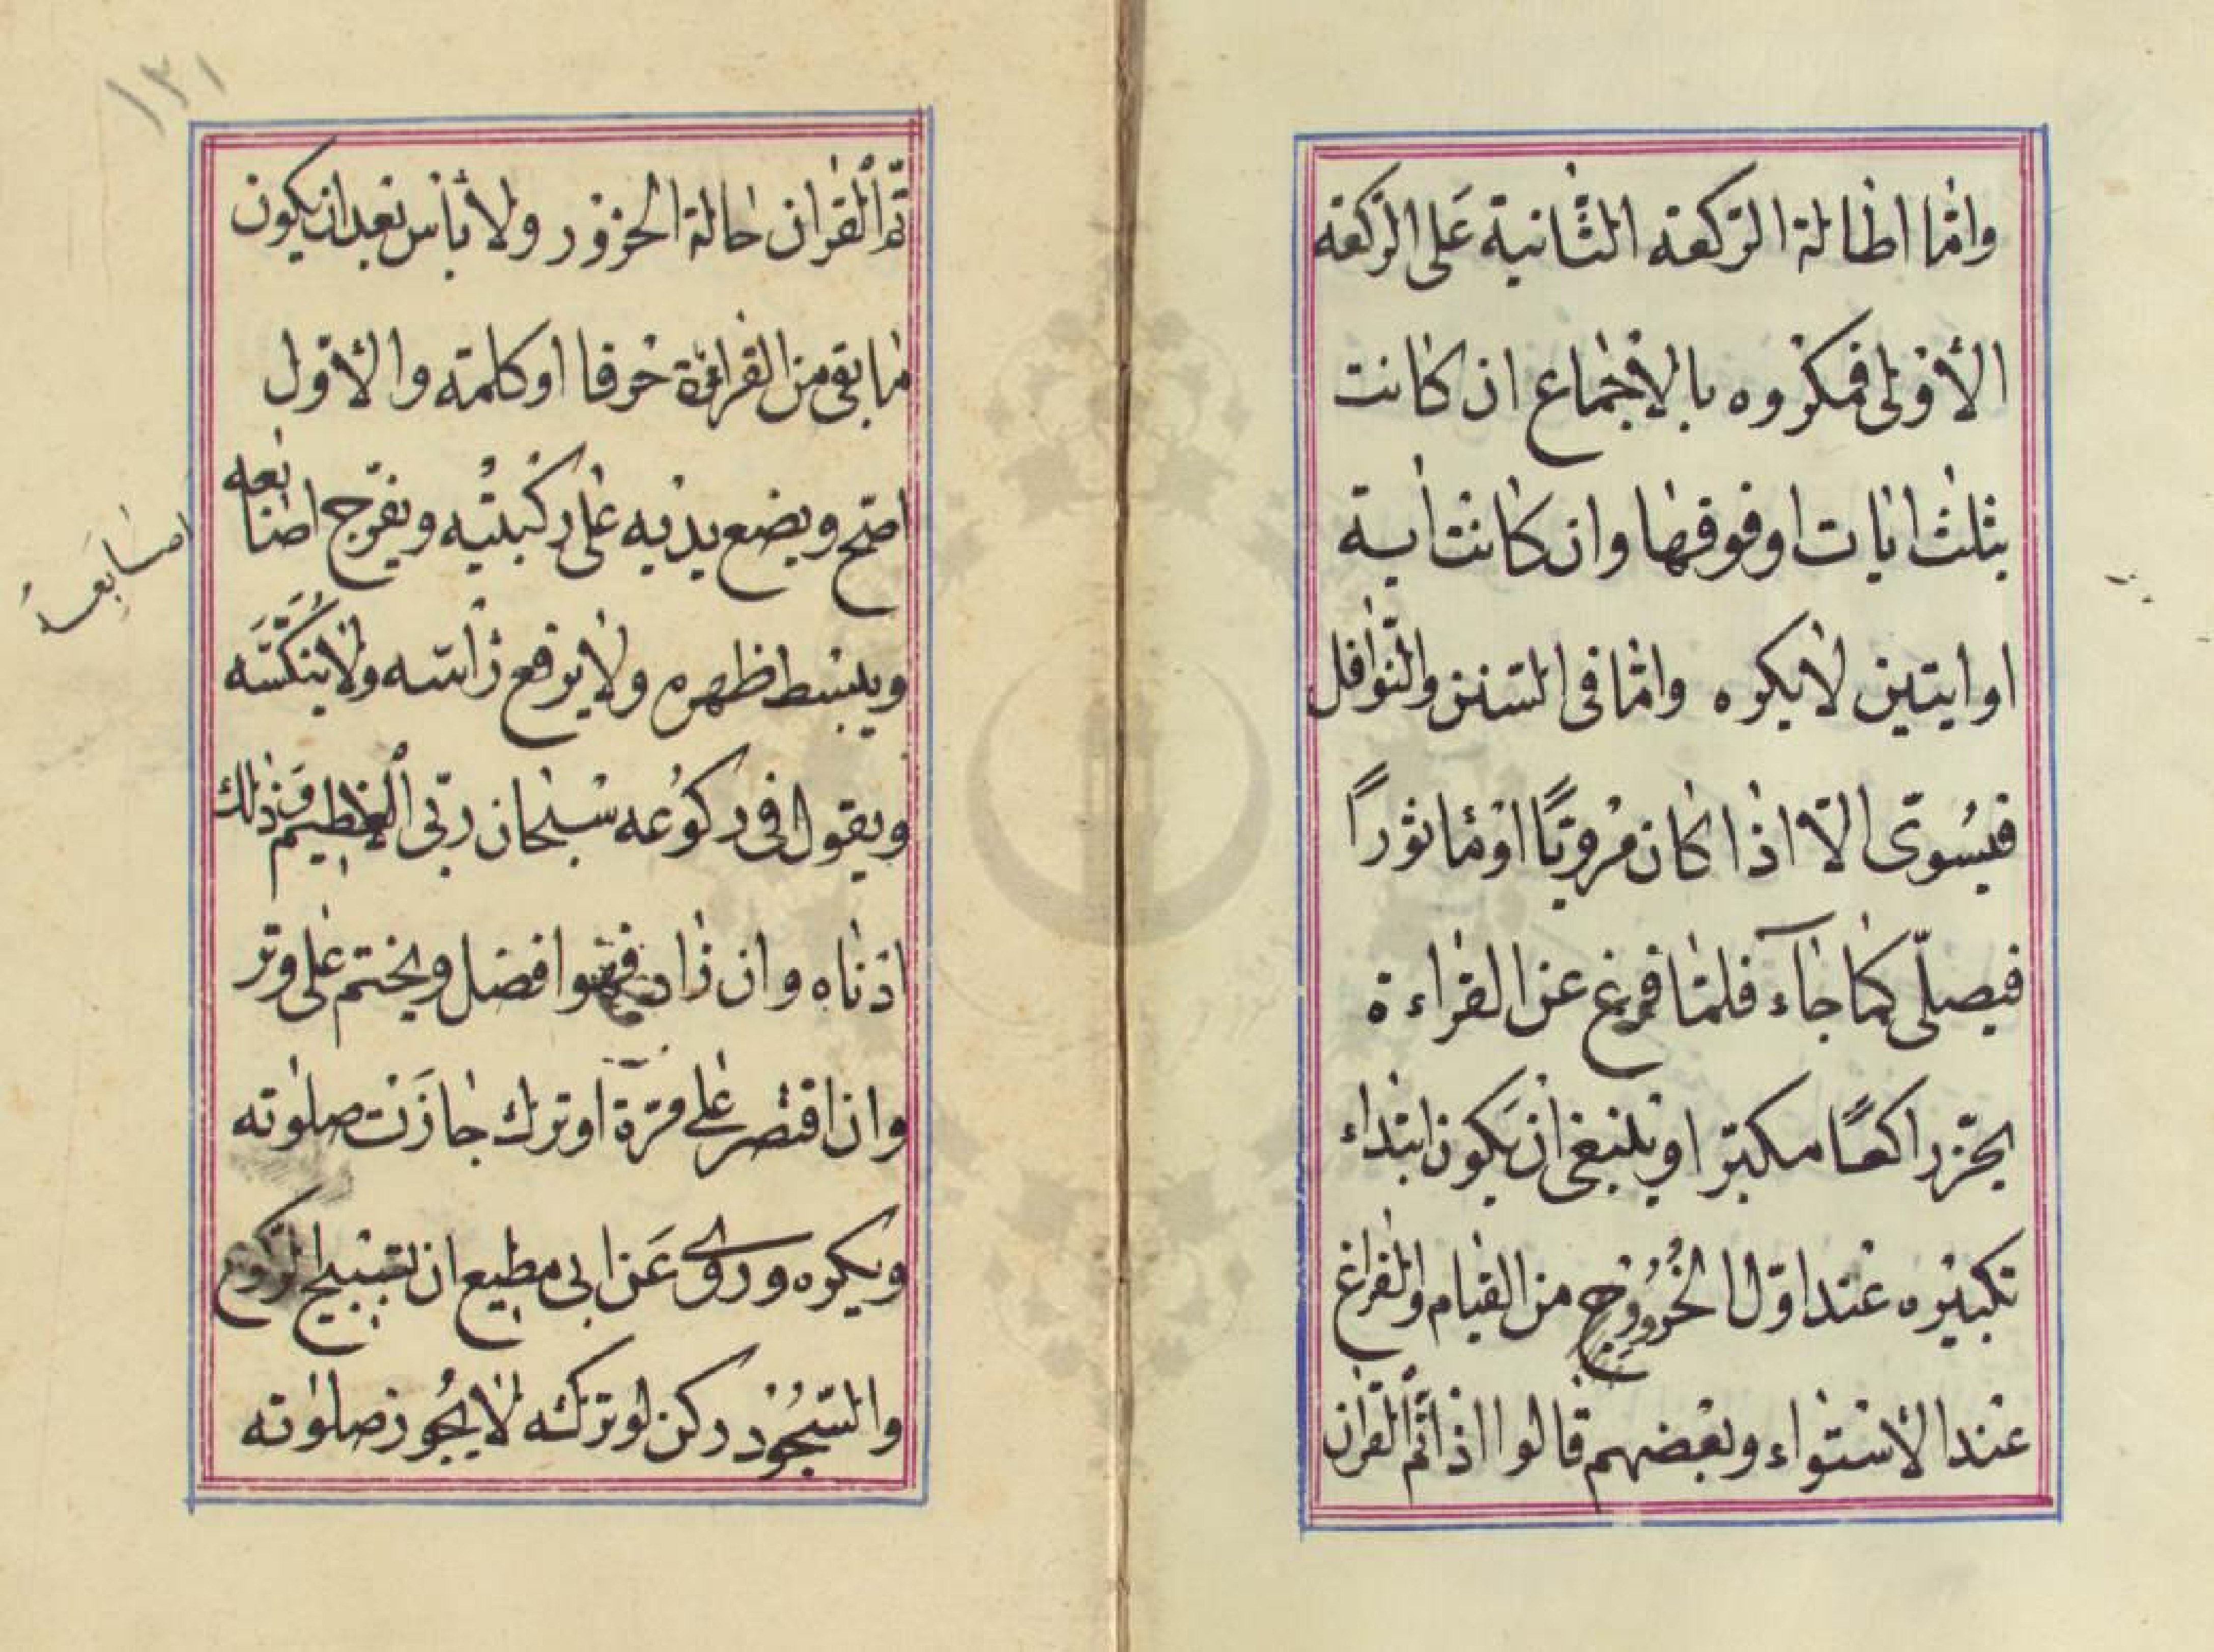 واما اطالة الركعة الثانية على الركعة
الأولى فمكروه بالاجماع ان كانت
بثلث ايات اوفوقها وان كانت اية
او ايتين لا يكره واما فى السنن والنوافل
فيسوى الا اذا كان مرويا او مأثورا
فيصلى كما جاء فلما فرغ عن القراءة
يخر راكعا مكبرا وينبغى ان يكون ابتداء
تكبيره عند اول الخروج من القيام والفراغ
عند الاستواء وبعضهم قالوا اذا اتم القران
تم القران حالة الخرور ولا بأس بعد ان يكون
ما بقى من القراءة حرفا او كلمة والاول
اصح ويضع يديه على ركبتيه ويفرج اصابعه
ويبسط ظهره ولا يرفع رأسه ولا ينكسه
ويقول فى ركوعه سبحان ربى العظيم وذلك
ادناه وان زاد فهو افضل ويختم على وتر
وان اقتصر على مرة او ترك جازت صلوته
ويكره وروى عن ابى مطيع ان تسبيح الركوع
والسجود ركن لو تركه لا يجوز صلوته
اصابعه
١٣١